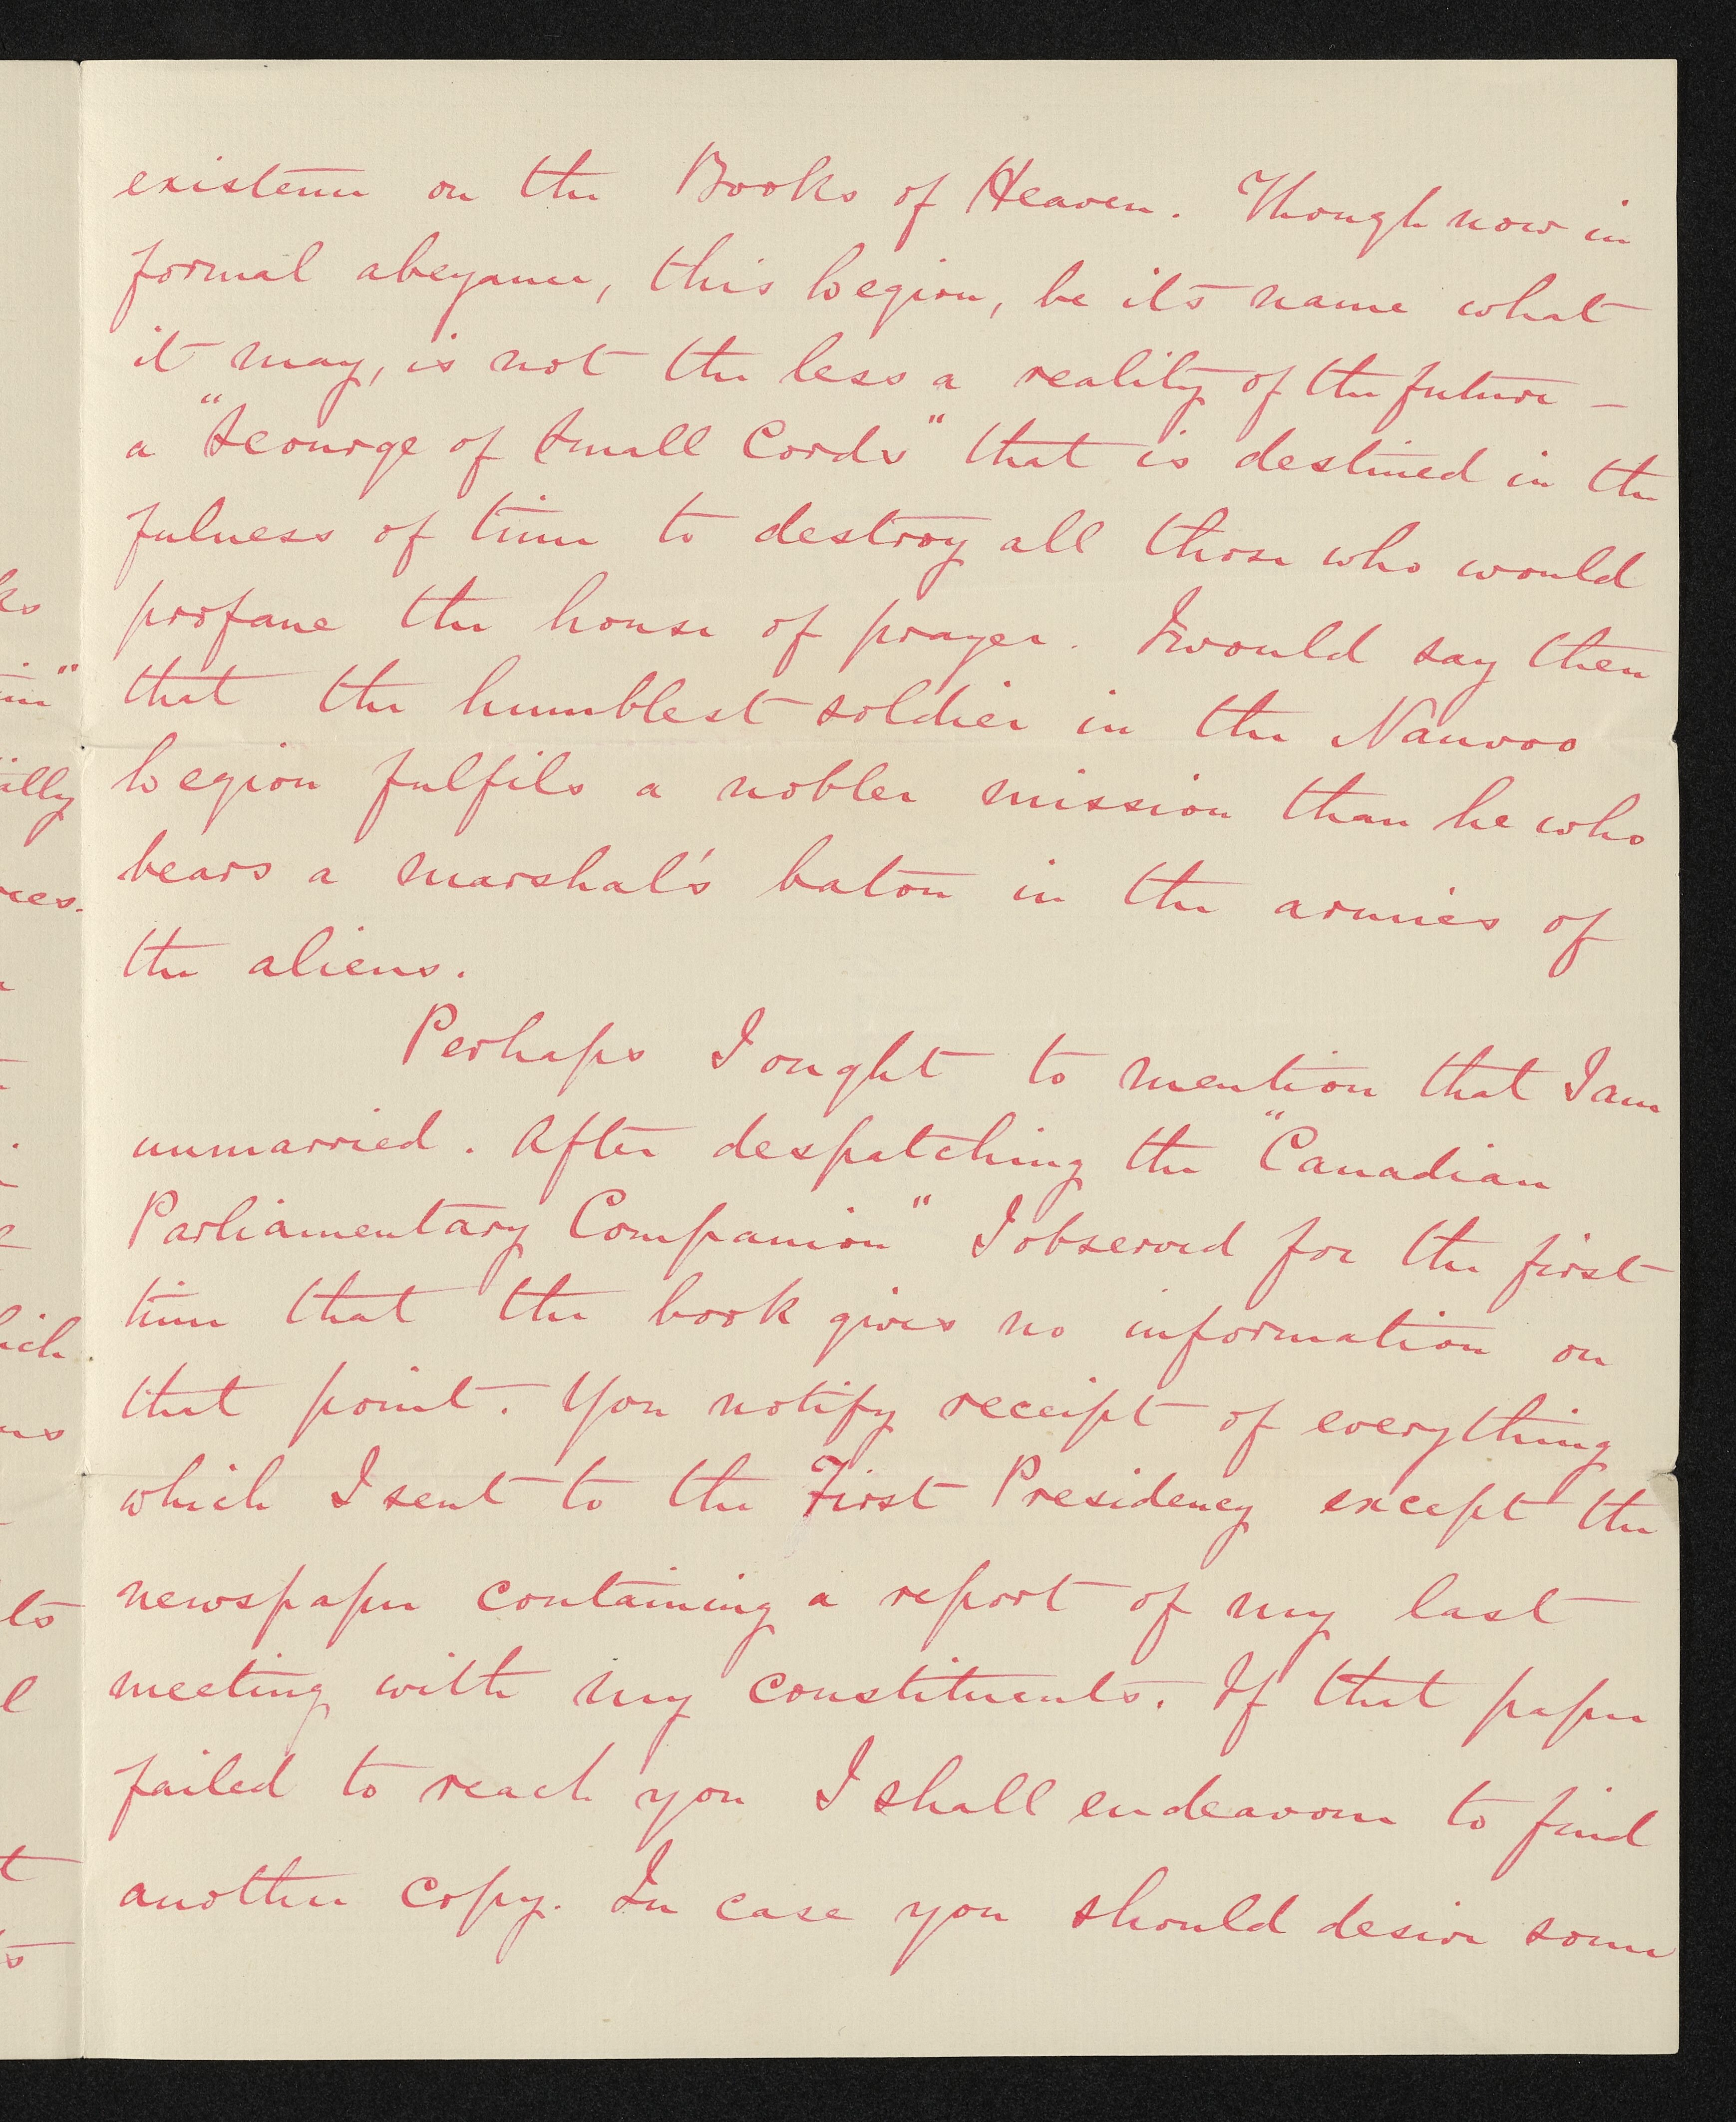 existence on the Books of Heaven. Though now in
formal abeyance, this Legion, be its name what
it may, is not the less a reality of the future —
a "Scourge of Small Cords" that is destined in the
fulness of time to destroy all those who would
profane the house of prayer. I would say then
that the humblest soldier in the Nauvoo
Legion fulfils a nobler mission than he who
bears a marshal's baton in the armies of
the aliens.
Perhaps I ought to mention that I am
unmarried. After despatching the "Canadian
Parliamentary Companion" I observed for the first
time that the book gives no information on
that point. You notify receipt of everything
which I sent to the First Presidency except the
newspaper containing a report of my last
meeting with my constituents. If that paper
failed to reach you I shall endeavour to find
another copy. In case you should desire some